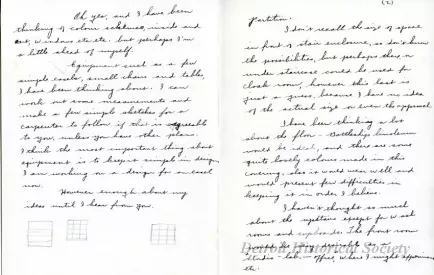 Oh yes, and I have been
thinking of colour schemes, inside and
out, windows etc. etc. but perhaps I'm
a little ahead of myself.
Equipment such as a few
simple easels, small chairs and tables,
I have been thinking about. I can
work out some measurements and
make a few simple sketches for a
carpenter to follow if that is agreeable
to you unless you have other plans.
I think the most important thing about
equipment is to keep it simple in design.
I am working on a design for an easel
now.
However enough about my
ideas until I hear from you.
(2)
partition.
I don't recall the size of space
in front of stair enclosure, so don't know
the possibilities, but perhaps there or
under staircase could be used for
cloak room, however this last is
just a guess, because I have no idea
of the actual size or even the approval.
I have been thinking a lot
about the floor - Battleship linoleum
would be ideal, and there are some
quite lovely colours made in this
covering, also it would wear well and
would present few difficulties in
keeping it in order I believe.
I haven't thought so much
about the upstairs except for wash
rooms and cupboards. The front room
studio - lab. or office, where I might
the
Detroit Historical Society